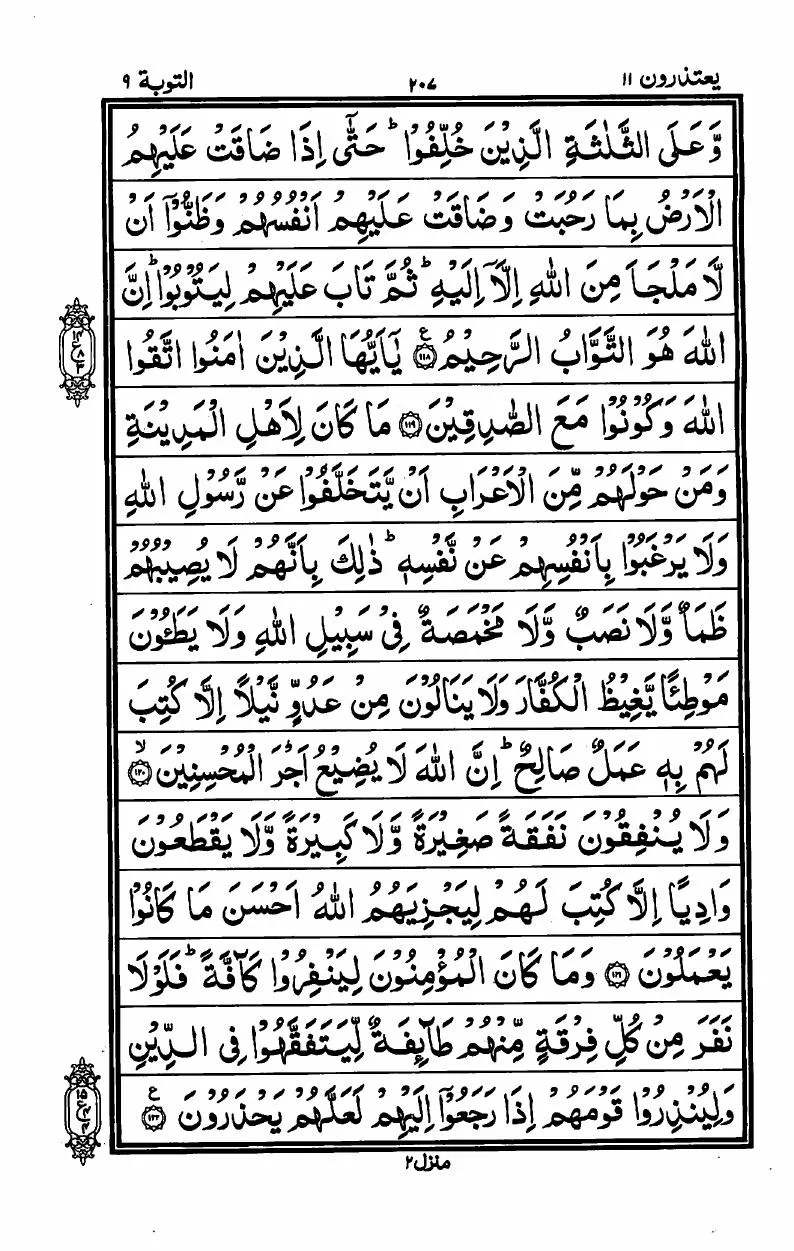 يعتذرون ١١
٢٠٧
التوبة ٩
وَّعَلَى الثَّلٰثَةِ الَّذِيْنَ خُلِّفُوْا ؕ حَتّٰۤى اِذَا ضَاقَتْ عَلَيْهِمُ
الْاَرْضُ بِمَا رَحُبَتْ وَضَاقَتْ عَلَيْهِمْ اَنْفُسُهُمْ وَظَنُّوْۤا اَنْ
لَّا مَلْجَاَ مِنَ اللّٰهِ اِلَّاۤ اِلَيْهِ ؕ ثُمَّ تَابَ عَلَيْهِمْ لِيَتُوْبُوْا ؕ اِنَّ
اللّٰهَ هُوَ التَّوَّابُ الرَّحِيْمُ ﴿١١٨﴾ ع يٰۤاَيُّهَا الَّذِيْنَ اٰمَنُوا اتَّقُوا
اللّٰهَ وَكُوْنُوْا مَعَ الصّٰدِقِيْنَ ﴿١١٩﴾ مَا كَانَ لِاَهْلِ الْمَدِيْنَةِ
وَمَنْ حَوْلَهُمْ مِّنَ الْاَعْرَابِ اَنْ يَّتَخَلَّفُوْا عَنْ رَّسُوْلِ اللّٰهِ
وَلَا يَرْغَبُوْا بِاَنْفُسِهِمْ عَنْ نَّفْسِهٖ ؕ ذٰلِكَ بِاَنَّهُمْ لَا يُصِيْبُهُمْ
ظَمَاٌ وَّلَا نَصَبٌ وَّلَا مَخْمَصَةٌ فِيْ سَبِيْلِ اللّٰهِ وَلَا يَطَـُٔوْنَ
مَوْطِئًا يَّغِيْظُ الْكُفَّارَ وَلَا يَنَالُوْنَ مِنْ عَدُوٍّ نَّيْلًا اِلَّا كُتِبَ
لَهُمْ بِهٖ عَمَلٌ صَالِحٌ ؕ اِنَّ اللّٰهَ لَا يُضِيْعُ اَجْرَ الْمُحْسِنِيْنَ ۙ﴿١٢٠﴾
وَلَا يُنْفِقُوْنَ نَفَقَةً صَغِيْرَةً وَّلَا كَبِيْرَةً وَّلَا يَقْطَعُوْنَ
وَادِيًا اِلَّا كُتِبَ لَهُمْ لِيَجْزِيَهُمُ اللّٰهُ اَحْسَنَ مَا كَانُوْا
يَعْمَلُوْنَ ﴿١٢١﴾ وَمَا كَانَ الْمُؤْمِنُوْنَ لِيَنْفِرُوْا كَآفَّةً ؕ فَلَوْلَا
نَفَرَ مِنْ كُلِّ فِرْقَةٍ مِّنْهُمْ طَآئِفَةٌ لِّيَتَفَقَّهُوْا فِى الدِّيْنِ
وَلِيُنْذِرُوْا قَوْمَهُمْ اِذَا رَجَعُوْۤا اِلَيْهِمْ لَعَلَّهُمْ يَحْذَرُوْنَ ﴿١٢٢﴾ ع
١٤
ع ٨
٣
١٥
ع ٤
٤
منزل ٢